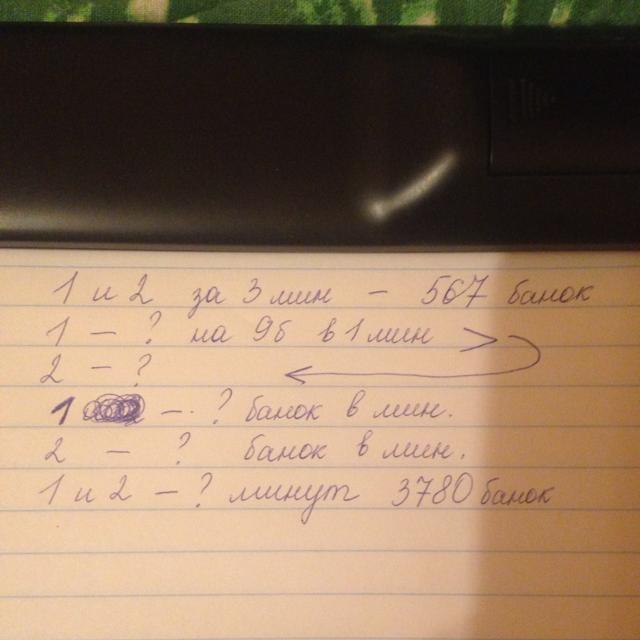 1 и 2 за 3 мин - 567 банок
1 - ? на 9б в 1 мин >
2 - ?
1 - ? банок в мин.
2 - ? банок в мин.
1 и 2 - ? минут 3780 банок